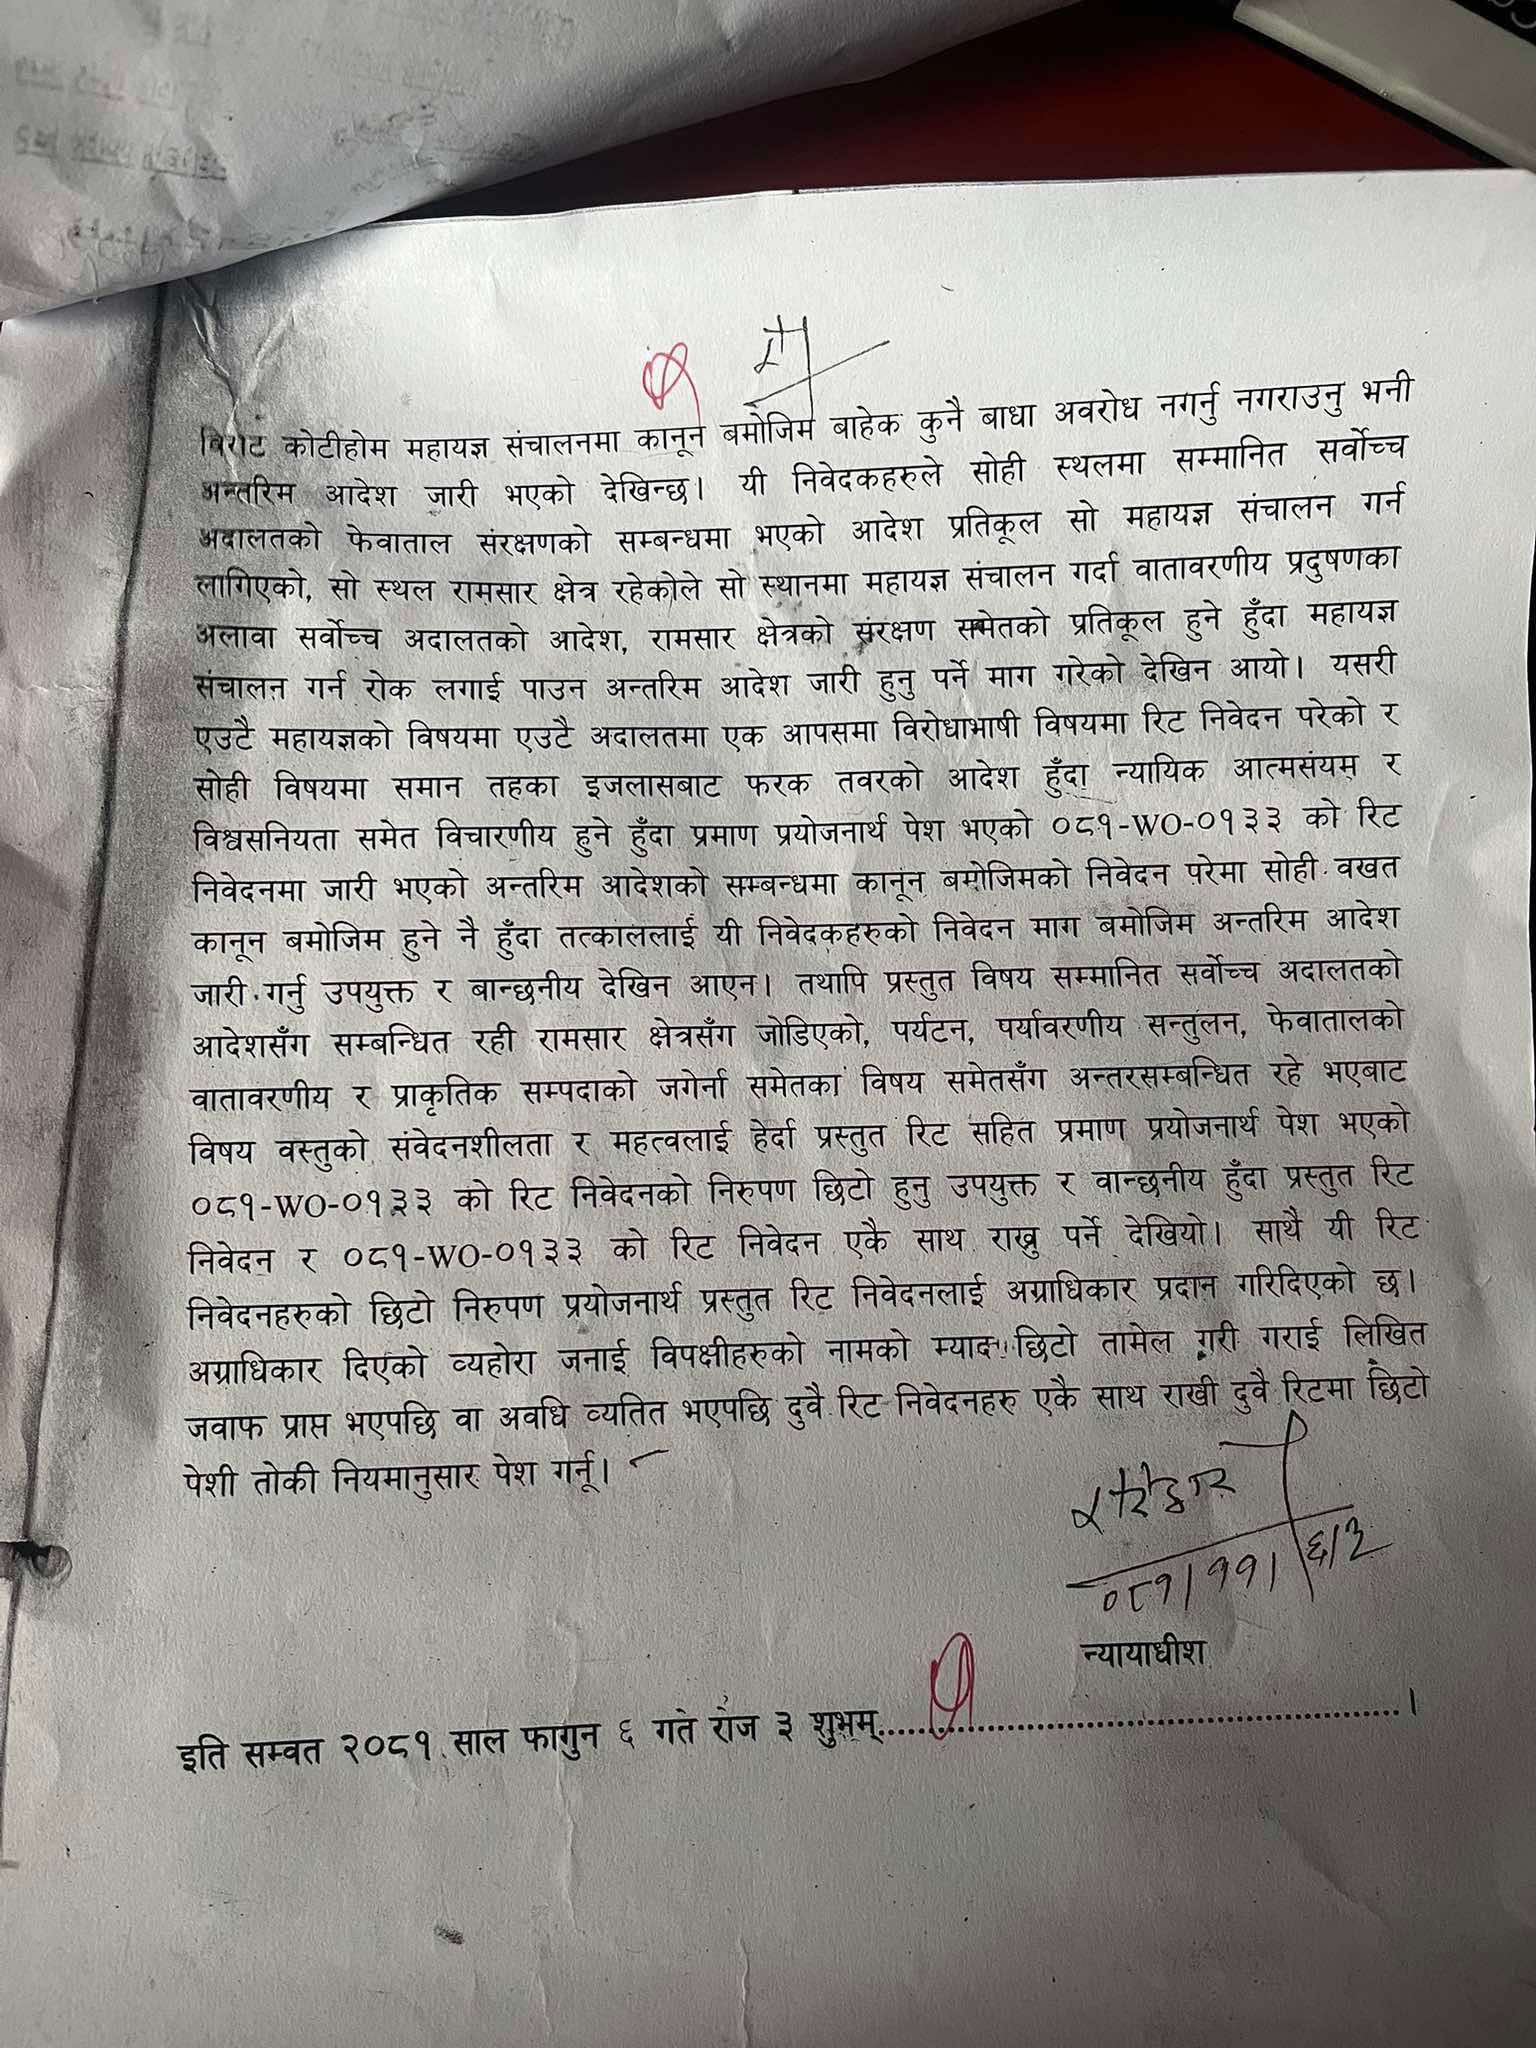 विराट कोटीहोम महायज्ञ संचालनमा कानून बमोजिम बाहेक कुनै बाधा अवरोध नगर्नु नगराउनु भनी
अन्तरिम आदेश जारी भएको देखिन्छ। यी निवेदकहरुले सोही स्थलमा सम्मानित सर्वोच्च
अदालतको फेवाताल संरक्षणको सम्बन्धमा भएको आदेश प्रतिकूल सो महायज्ञ संचालन गर्न
लागिएको, सो स्थल रामसार क्षेत्र रहेकोले सो स्थानमा महायज्ञ संचालन गर्दा वातावरणीय प्रदुषणका
अलावा सर्वोच्च अदालतको आदेश, रामसार क्षेत्रको संरक्षण समेतको प्रतिकूल हुने हुँदा महायज्ञ
संचालन गर्न रोक लगाई पाउन अन्तरिम आदेश जारी हुनु पर्ने माग गरेको देखिन आयो। यसरी
एउटै महायज्ञको विषयमा एउटै अदालतमा एक आपसमा विरोधाभाषी विषयमा रिट निवेदन परेको र
सोही विषयमा समान तहका इजलासबाट फरक तवरको आदेश हुँदा न्यायिक आत्मसंयम र
विश्वसनियता समेत विचारणीय हुने हुँदा प्रमाण प्रयोजनार्थ पेश भएको ०८१-WO-०१३३ को रिट
निवेदनमा जारी भएको अन्तरिम आदेशको सम्बन्धमा कानून बमोजिमको निवेदन परेमा सोही वखत
कानून बमोजिम हुने नै हुँदा तत्काललाई यी निवेदकहरुको निवेदन माग बमोजिम अन्तरिम आदेश
जारी गर्नु उपयुक्त र बान्छनीय देखिन आएन। तथापि प्रस्तुत विषय सम्मानित सर्वोच्च अदालतको
आदेशसँग सम्बन्धित रही रामसार क्षेत्रसँग जोडिएको, पर्यटन, पर्यावरणीय सन्तुलन, फेवातालको
वातावरणीय र प्राकृतिक सम्पदाको जगेर्ना समेतका विषय समेतसँग अन्तरसम्बन्धित रहे भएबाट
विषय वस्तुको संवेदनशीलता र महत्वलाई हेर्दा प्रस्तुत रिट सहित प्रमाण प्रयोजनार्थ पेश भएको
०८१-WO-०१३३ को रिट निवेदनको निरुपण छिटो हुनु उपयुक्त र वान्छनीय हुँदा प्रस्तुत रिट
निवेदन र ०८१-WO-०१३३ को रिट निवेदन एकै साथ राख्नु पर्ने देखियो। साथै यी रिट
निवेदनहरुको छिटो निरुपण प्रयोजनार्थ प्रस्तुत रिट निवेदनलाई अग्राधिकार प्रदान गरिदिएको छ।
अग्राधिकार दिएको व्यहोरा जनाई विपक्षीहरुको नामको म्याद छिटो तामेल गरी गराई लिखित
जवाफ प्राप्त भएपछि वा अवधि व्यतित भएपछि दुवै रिट निवेदनहरु एकै साथ राखी दुवै रिटमा छिटो
पेशी तोकी नियमानुसार पेश गर्नू।
०८१/११/६/३
न्यायाधीश
इति सम्वत २०८१ साल फागुन ६ गते रोज ३ शुभम्..........................................................।